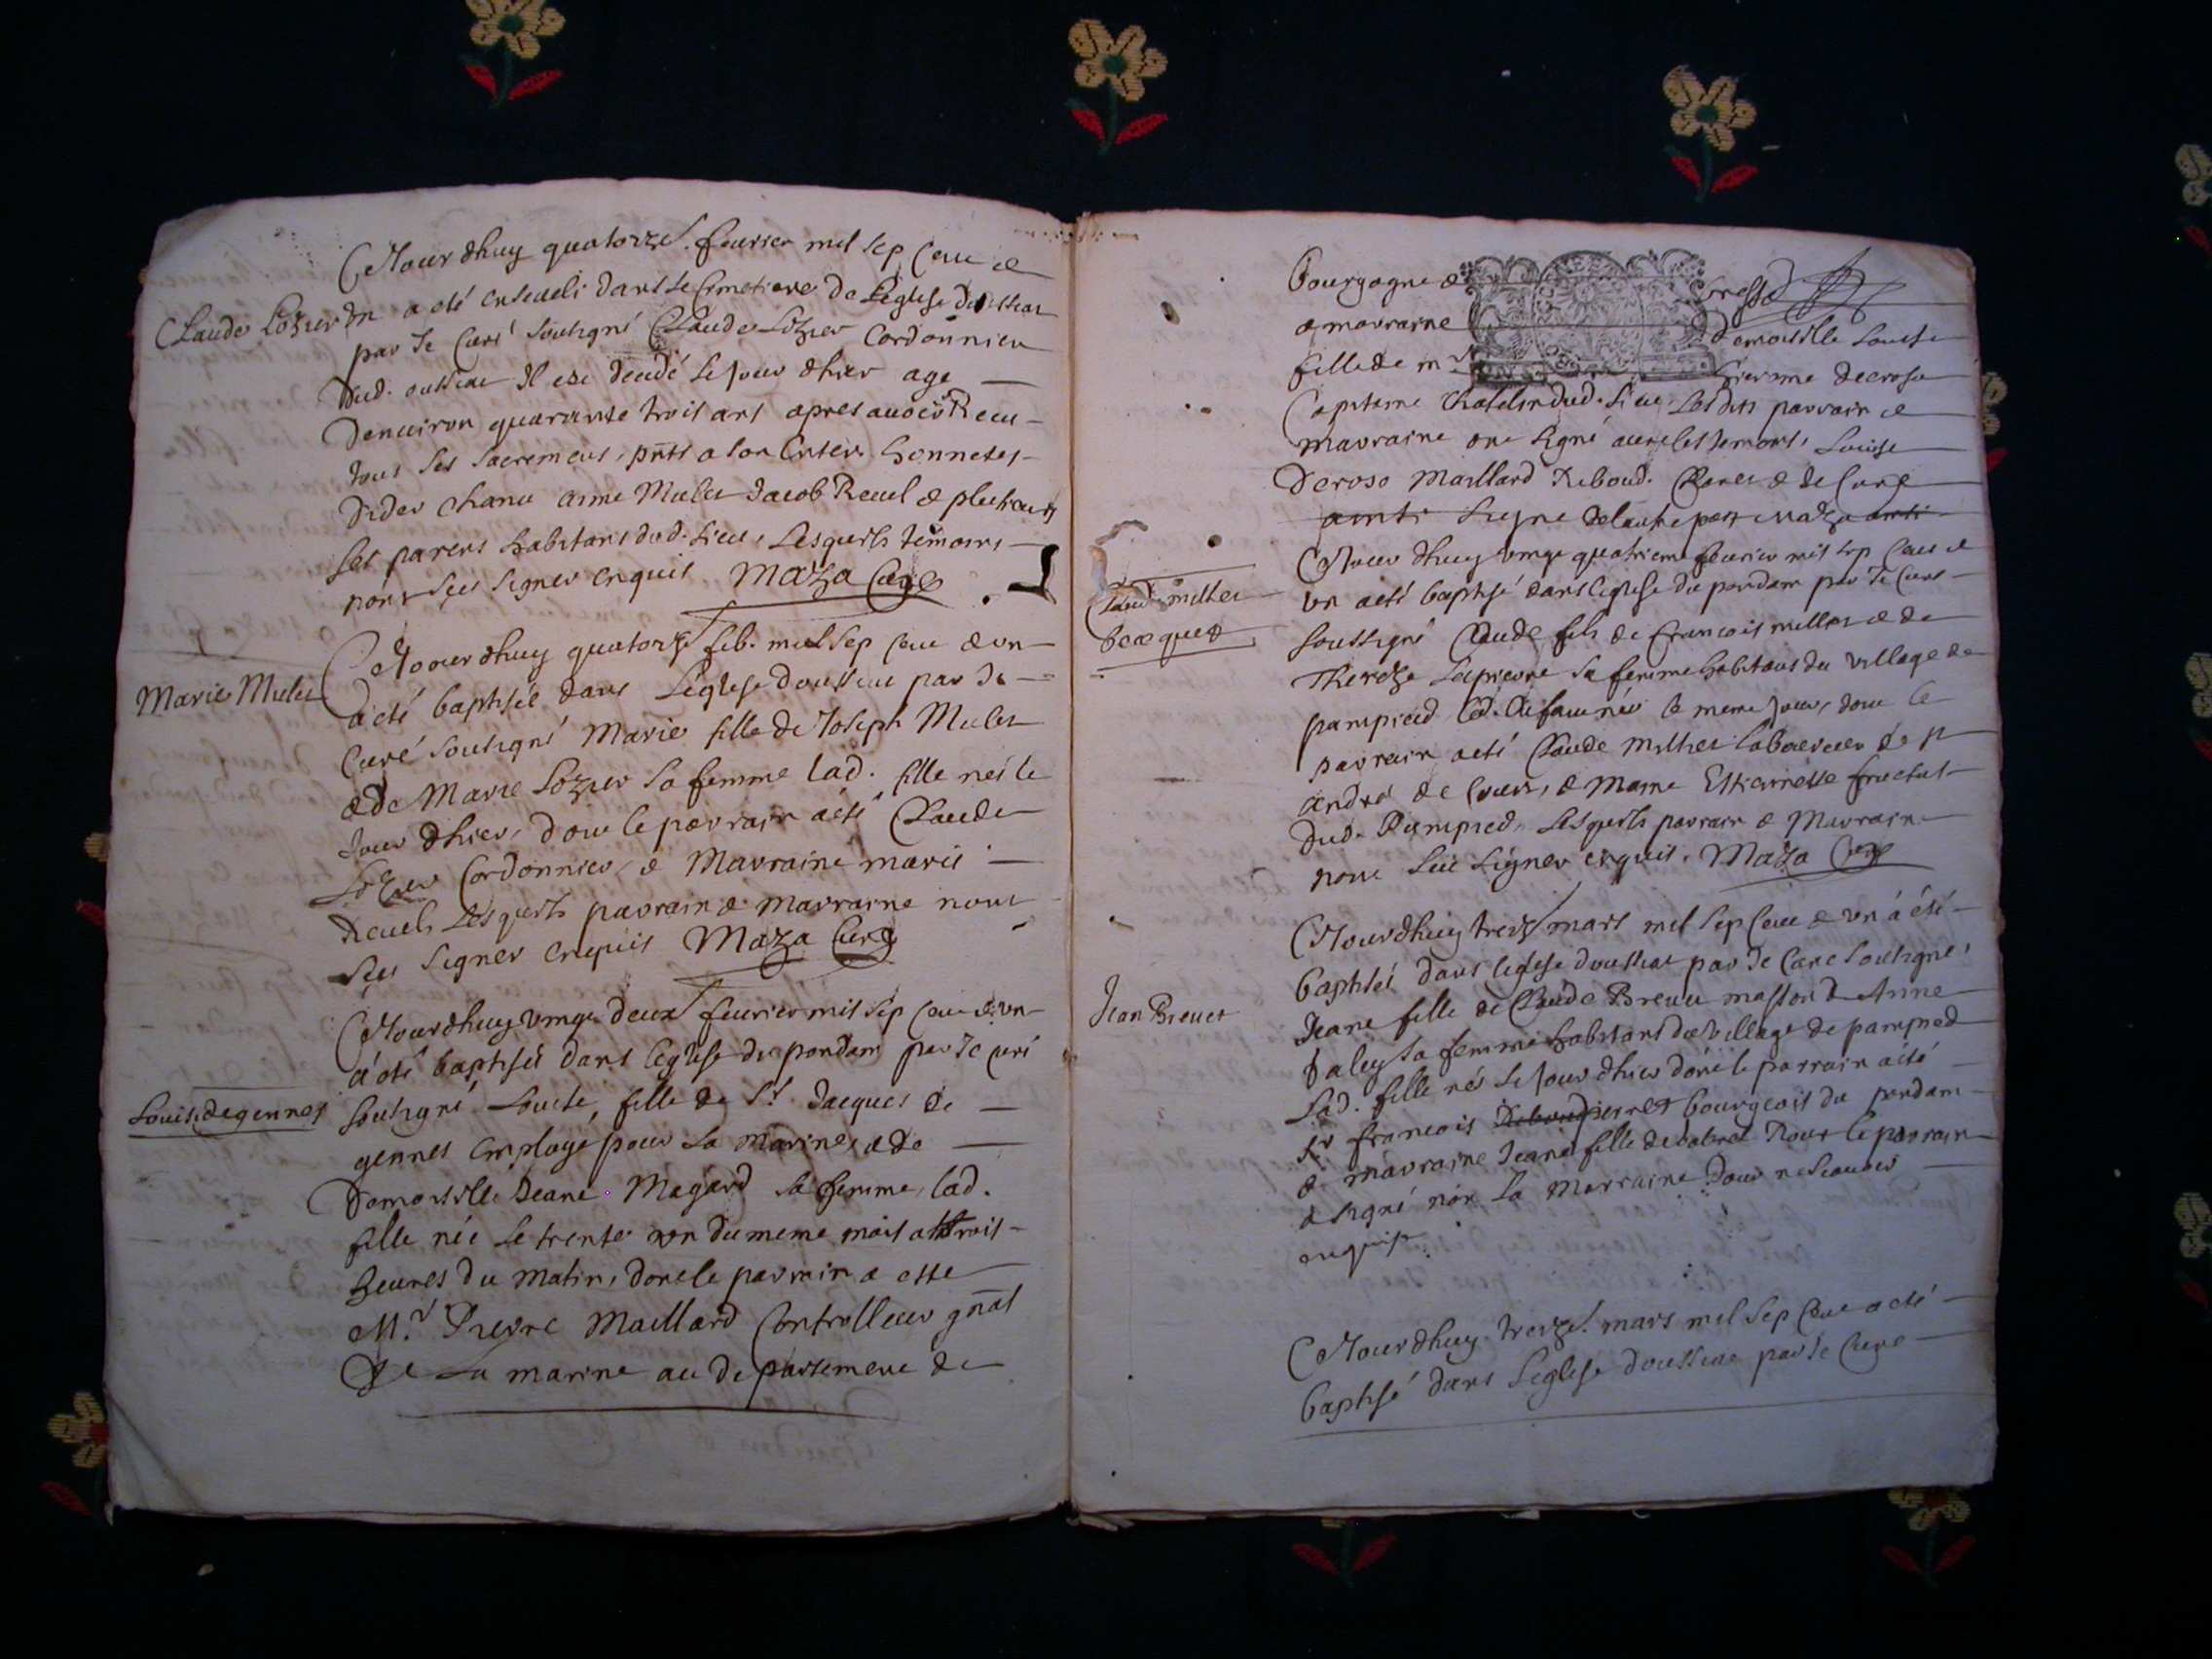 Ce Jourdhuy quatorze. feurier mil sep cent et
Claude Lozier un a eté enseueli dans le Cimetiere de Leglise doussiat
par Je Curé soussigné Claude Lozier Cordonnier
dud. oussiat Il est decedé le jour dhier agé
denuiron quarante trois ans apres auoir Receu
tous les sacremens, pnts a son enter. honnetes
didier Chanu aime Mulet Jacob Reuel & plusieurs
ses parens habitans dud. lieu, Lesquels temoins
nont sceu signer enquis Maza Curé
Ce Jourdhuy quatorze feb. mil sep cent & un
Marie Mulet
a eté baptisée dans Léglise doussiat par Je
Curé soussigné Marie fille de Joseph Mulet
& de Marie Lozier sa femme lad. fille née le
Jour dhier, dont le parrain a eté Claude
Lozier Cordonnier, & Marraine marie
Reuel, Lesquels parrain & marraine nont
sceu signer enquis Maza Curé
Ce Jourdhuy vingt deux feurier mil sep cent & un
a eté baptisée dans leglise du pondain par Je curé
Louise de gennes
soussigné Louise, fille de Sr. Jacques de
gennes employé pour La marine, & de
Demoiselle Jeane Magard sa femme, lad.
fille née le trente un du meme mois a trois
heures du matin, dont le parrain a esté
Mr. Pierre Maillard Controlleur gñal
De La marine au departement de
Bourgogne &
& marraine Demoiselle Louise
fille de mr. deerose
Capitaine Chatelin dud. lieu, Lesdits parrain &
marraine ont signé auec les temoins, Louise
Derose Maillard Riboud.
Ce Jourdhuy vingt quatrieme feurier mil sep cent &
Claud millet
un a eté baptisé dans leglise du pondain par Je Curé
soussigné Claude fils de francois millet & de
Thereze sa femme habitans du village de
pampied led. Enfant né le meme jour, dont le
parrain a eté Claude Millet laboureur de st
andré & Marraine
dud. Pampied, Lesquels parrain & Marraine
nont sceu signer enquis. Maza Curé
Ce Jourdhuy treize mars mil sep cent & un a été
baptisée dans leglise doussiat par Je Curé soussigné
Jean Breuet
Jeane fille de Claude Breuet masson & Anne
sa femme habitans du village de pampied
Lad. fille née le jour dhier dont le parrain a eté
Sr francois bourgeois du pondain
& marraine Jeane fille de le parrain
a signé non La marraine pour ne scauoir
enquise
Ce Jourdhuy treize. mars mil sep cent a eté
baptisé dans Leglise doussiat par Je Curé